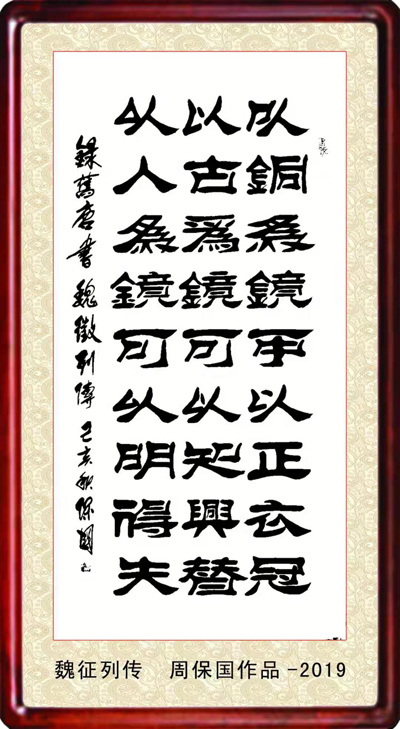 以銅為鏡可以正衣冠
以古為鏡可以知興替
以人為鏡可以明得失
錄舊唐書魏徵列傳 己亥秋保國
魏征列传 周保国作品-2019